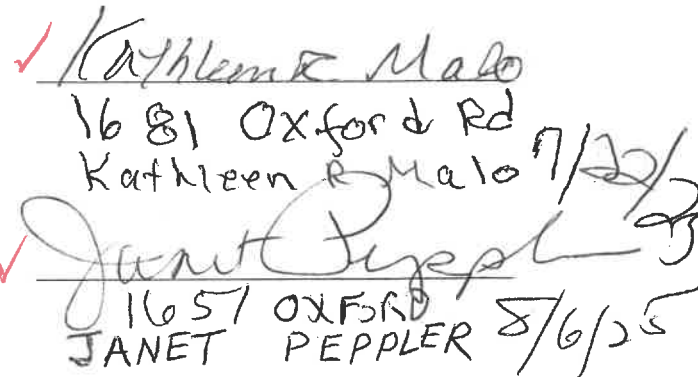 Kathleen R Malo
1681 Oxford Rd
Kathleen R Malo 7/22/25
Janet Peppler
1651 OXFORD
JANET PEPPLER 8/6/25